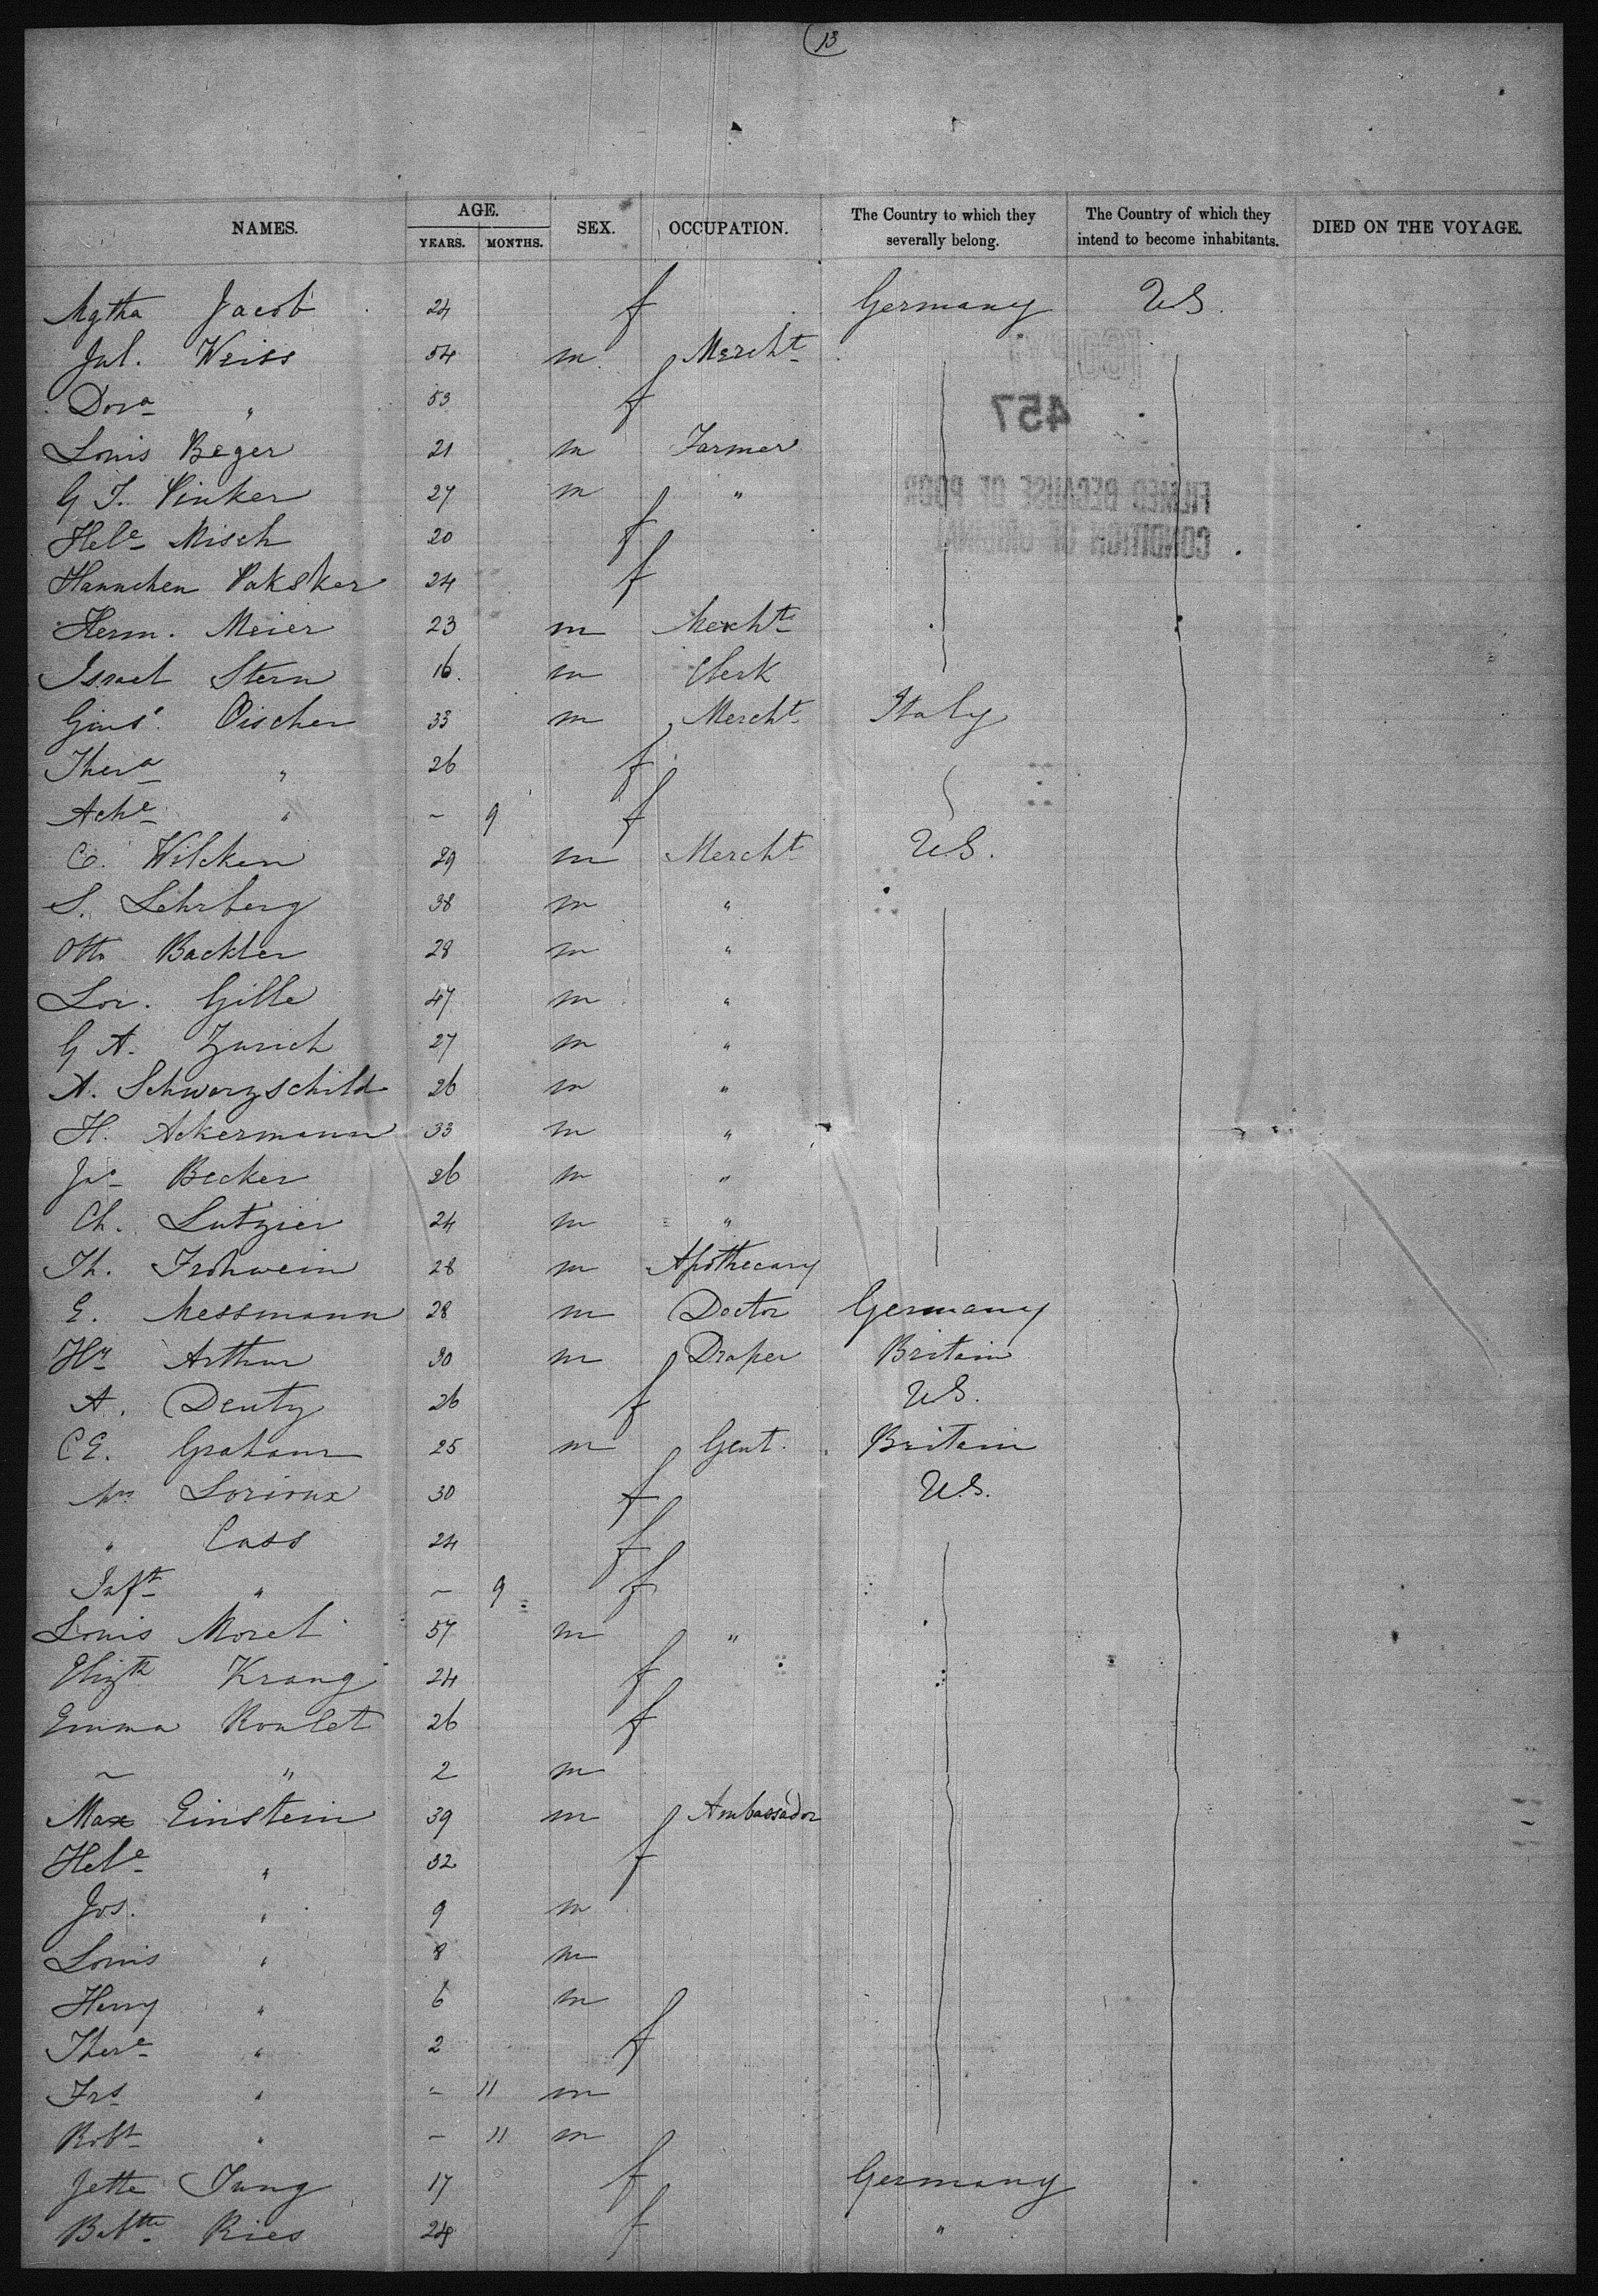 13
NAMES. AGE. YEARS. MONTHS. SEX. OCCUPATION. The Country to which they severally belong. The Country of which they intend to become inhabitants. DIED ON THE VOYAGE.
Mgtha Jacob 24 f Germany U.S.
Jul. Weiss 54 m Mercht
Dora " 53 f
Louis Beger 21 m Farmer
G J. Pinker 27 m "
Hele Misch 20 f
Hannchen Paksker 24 f
Herm. Meier 23 m Mercht
Israel Stern 16. m Clerk
Gius. Discher 33 m Mercht Italy
Thera " 26 f
Ache " – 9 f
C. Wilcken 29 m Mercht U.S.
S. Lehrberg 38 m "
Otto Backler 28 m "
Lor. Gille 47 m "
G A. Zurich 27 m "
A. Schwarzschild 26 m "
H. Ackermann 33 m "
Jac Becker 26 m "
Ch. Lutzier 24 m "
Th. Frohwein 28 m Apothecary
E. Messmann 28 m Doctor Germany
Hy Arthur 30 m Draper Britain
A. Deutz 26 f U.S.
C E. Graham 25 m Gent. Britain
Mrs Lorioux 30 f U.S.
" Cass 24 f
Inft " – 9 f
Louis Morel 57 m "
Elizth Krang 24 f
Emma Roulet 26 f
– " 2 m
Max Einstein 39 m Ambassador
Hele " 32 f
Jos. " 9 m
Louis " 8 m
Henry " 6 m
There " 2 f
Frs " – 11 m
Robt " – 11 m
Jette Jung 17 f Germany
Babtte Ries 24 f "
457
FILMED BECAUSE OF POOR
CONDITION OF ORIGINAL